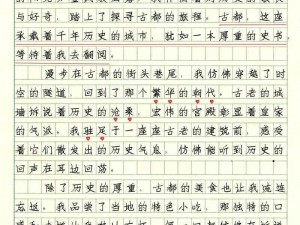 与好奇，踏上了探寻古都的旅程。古都，这座
承载着千年历史的城市，犹如一本厚重的史书，
等待着我去翻阅。
漫步在古都的街头巷尾，我仿佛穿越了时
空的隧道，回到了那个繁华的朝代。古老的城
墙诉说着历史的沧桑，宏伟的宫殿彰显着皇家
的气派。我驻足于一座座古老的建筑前，感受
着它们散发出的历史气息，仿佛能听到历史的
回声在耳边回荡。
除了历史的厚重，古都的美食也让我流连
忘返。我品尝了当地的特色小吃，那独特的口